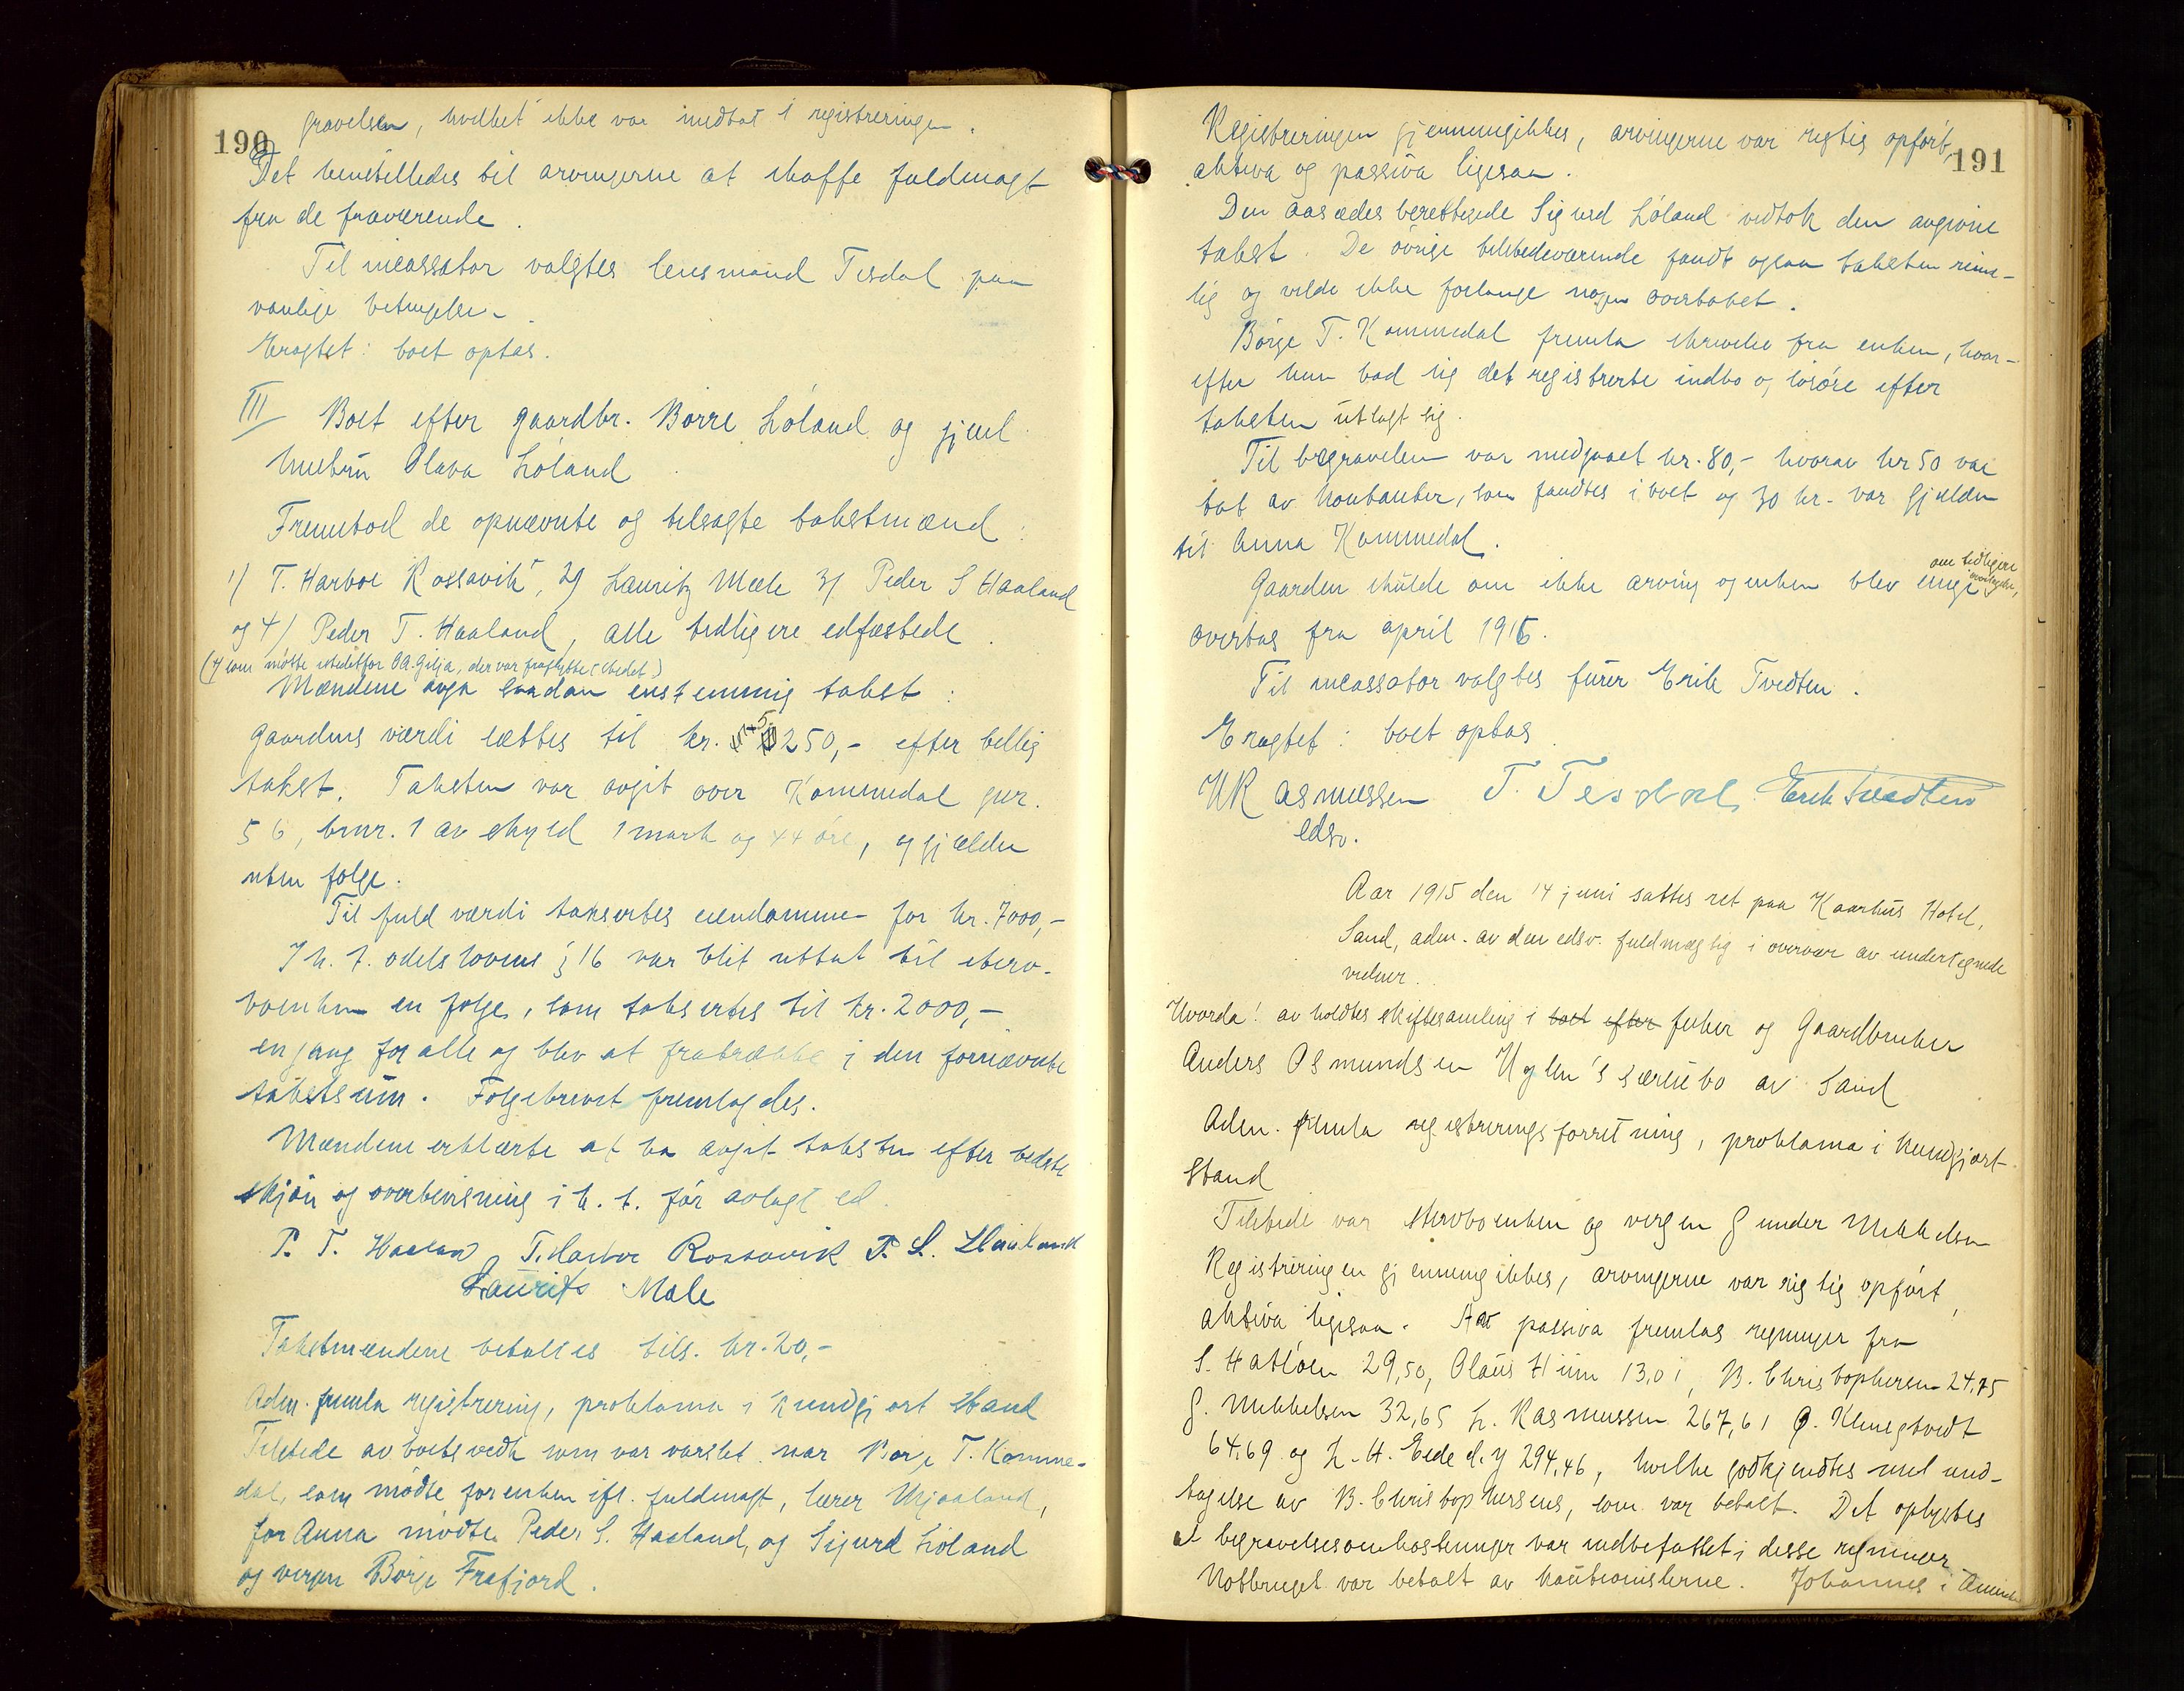 190
gravelsen, hvilket ikke var medtat i registreringen.
Det henstilledes til arvingerne at skaffe fuldmagt
fra de fraværende.
Til incassator valgtes lensmand Tesdal paa
vanlige betingelser.
Eragtet: boet optas.
III Boet efter gaardbr. Børre Løland og gjenl.
hustru Olava Løland
Fremstod de opnævnte og tilsagte takstmænd:
1) T. Harboe Rossavik, 2) Lauritz Mæle 3) Peder S Haaland
og 4) Peder T. Haaland, alle tidligere edfæstede.
(4 som møtte istedetfor O.A. Gilja, der var fraflyttet stedet)
Mændene avga saadan enstemmig takst:
Gaardens værdi sættes til kr. 5250,- efter billig
takst. Taksten var avgit over Kommedal gnr.
56, bnr. 1 av skyld 1 mark og 44 øre, og gjælder
uten følge.
Til fuld værdi taksertes eiendommen for kr. 7000,-
I h. t. odelslovens § 16 var blit uttat til sterv-
boenken en følge, som taksertes til kr. 2000,-
en gang for alle og blev at fratrække i den fornævnte
takstsum. Følgebrevet fremlagdes.
Mændene erklærte at ha avgit taksten efter bedste
skjøn og overbevisning i h. t. før avlagt ed.
P. T. Haaland T. Harboe Rossavik P. S. Haaland
Laurits Mæle
Takstmændene betaltes tils. kr. 20,-
Adm. fremla registrering, proklama i kundgjort stand
Tilstede av boets vedk. som var varslet var Børge T. Komme-
dal, som mødte for enken ifl. fuldmagt, lærer Mjaaland,
for Anna mødte Peder S. Haaland, og Sigurd Løland
og vergen Børge Frafjord.
191
Registreringen gjennemgikkes, arvingerne var rigtig opført,
aktiva og passiva ligesaa.
Den aasædesberettigede Sigurd Løland vedtok den avgivne
takst. De øvrige tilstedeværende fandt ogsaa taksten rime-
lig og vilde ikke forlange nogen overtakst.
Børge T. Kommedal fremla skrivelse fra enken, hvor-
efter hun bad sig det registrerte indbo og løsøre efter
taksten utlagt sig.
Til begravelsen var medgaaet kr. 80,- hvorav kr 50 var
tat av kontanter, som fandtes i boet og 30 kr. var gjælden
til Anna Kommedal.
Gaarden skulde om ikke arving og enken blev enige om tidligere
overtagelse,
overtas fra april 1916.
Til incassator valgtes furer Erik Tvedten.
Eragtet: boet optas.
H Rasmussen T. Tesdal Erik Tvedten
edsv.
Aar 1915 den 14 juni sattes ret paa Kaarhus Hotel,
Sand, adm. av den edsv. fuldmægtig i overvær av undertegnede
vidner.
Hvorda! avholdtes skiftesamling i boet efter forher og Gaardbruker
Anders Osmundsen Uglen's særkebo av Sand
Adm. fremla registreringsforretning, proklama i kundgjort
stand
Tilstede var stervboenken og vergen G under Mikkelsen
Registreringen gjennemgikkes, arvingerne var rigtig opført,
aktiva ligesaa. Av passiva fremlas regninger fra
S. Hatløen 29,50, Olaus Hiim 13,01, B. Christophersen 24,75
G. Mikkelsen 32,65 L. Rasmussen 267,61 O. Klungtvedt
64,69 og L. H. Eide d. y 294,46, hvilke godkjendtes med und-
tagelse av B. Christophersens, som var betalt. Det oplystes
at begravelsesomkostninger var indbefattet i disse regninger
Notbruget var betalt av kautionisterne. Johannes i